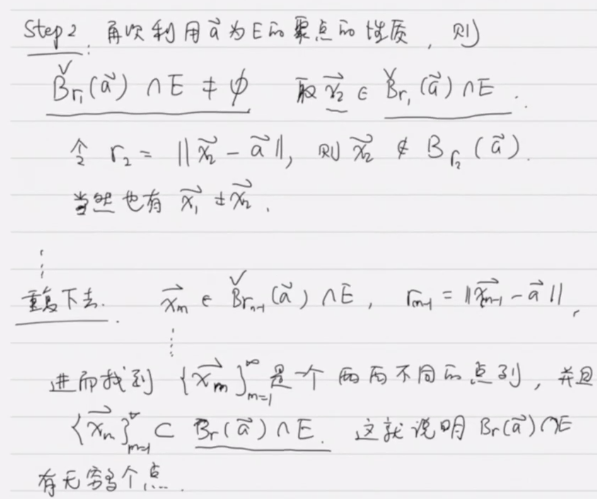 Step 2: 再次利用 a⃗ 为 E 的聚点的性质, 则
B̌r₁(a⃗) ∩ E ≠ ϕ 取 x⃗₂ ∈ B̌r₁(a⃗) ∩ E.
令 r₂ = ‖x⃗₂ - a⃗‖, 则 x⃗₂ ∉ Br₂(a⃗).
当然也有 x⃗₁ ≠ x⃗₂.
⋮
重复下去. x⃗m ∈ B̌rm-1(a⃗) ∩ E, rm-1 = ‖x⃗m-1 - a⃗‖,
⋮
进而找到 {x⃗m}∞m=1 是一个两两不同的点列, 并且
{x⃗m}∞m=1 ⊂ Br(a⃗) ∩ E. 这就说明 Br(a⃗)∩E
有无穷多个点.